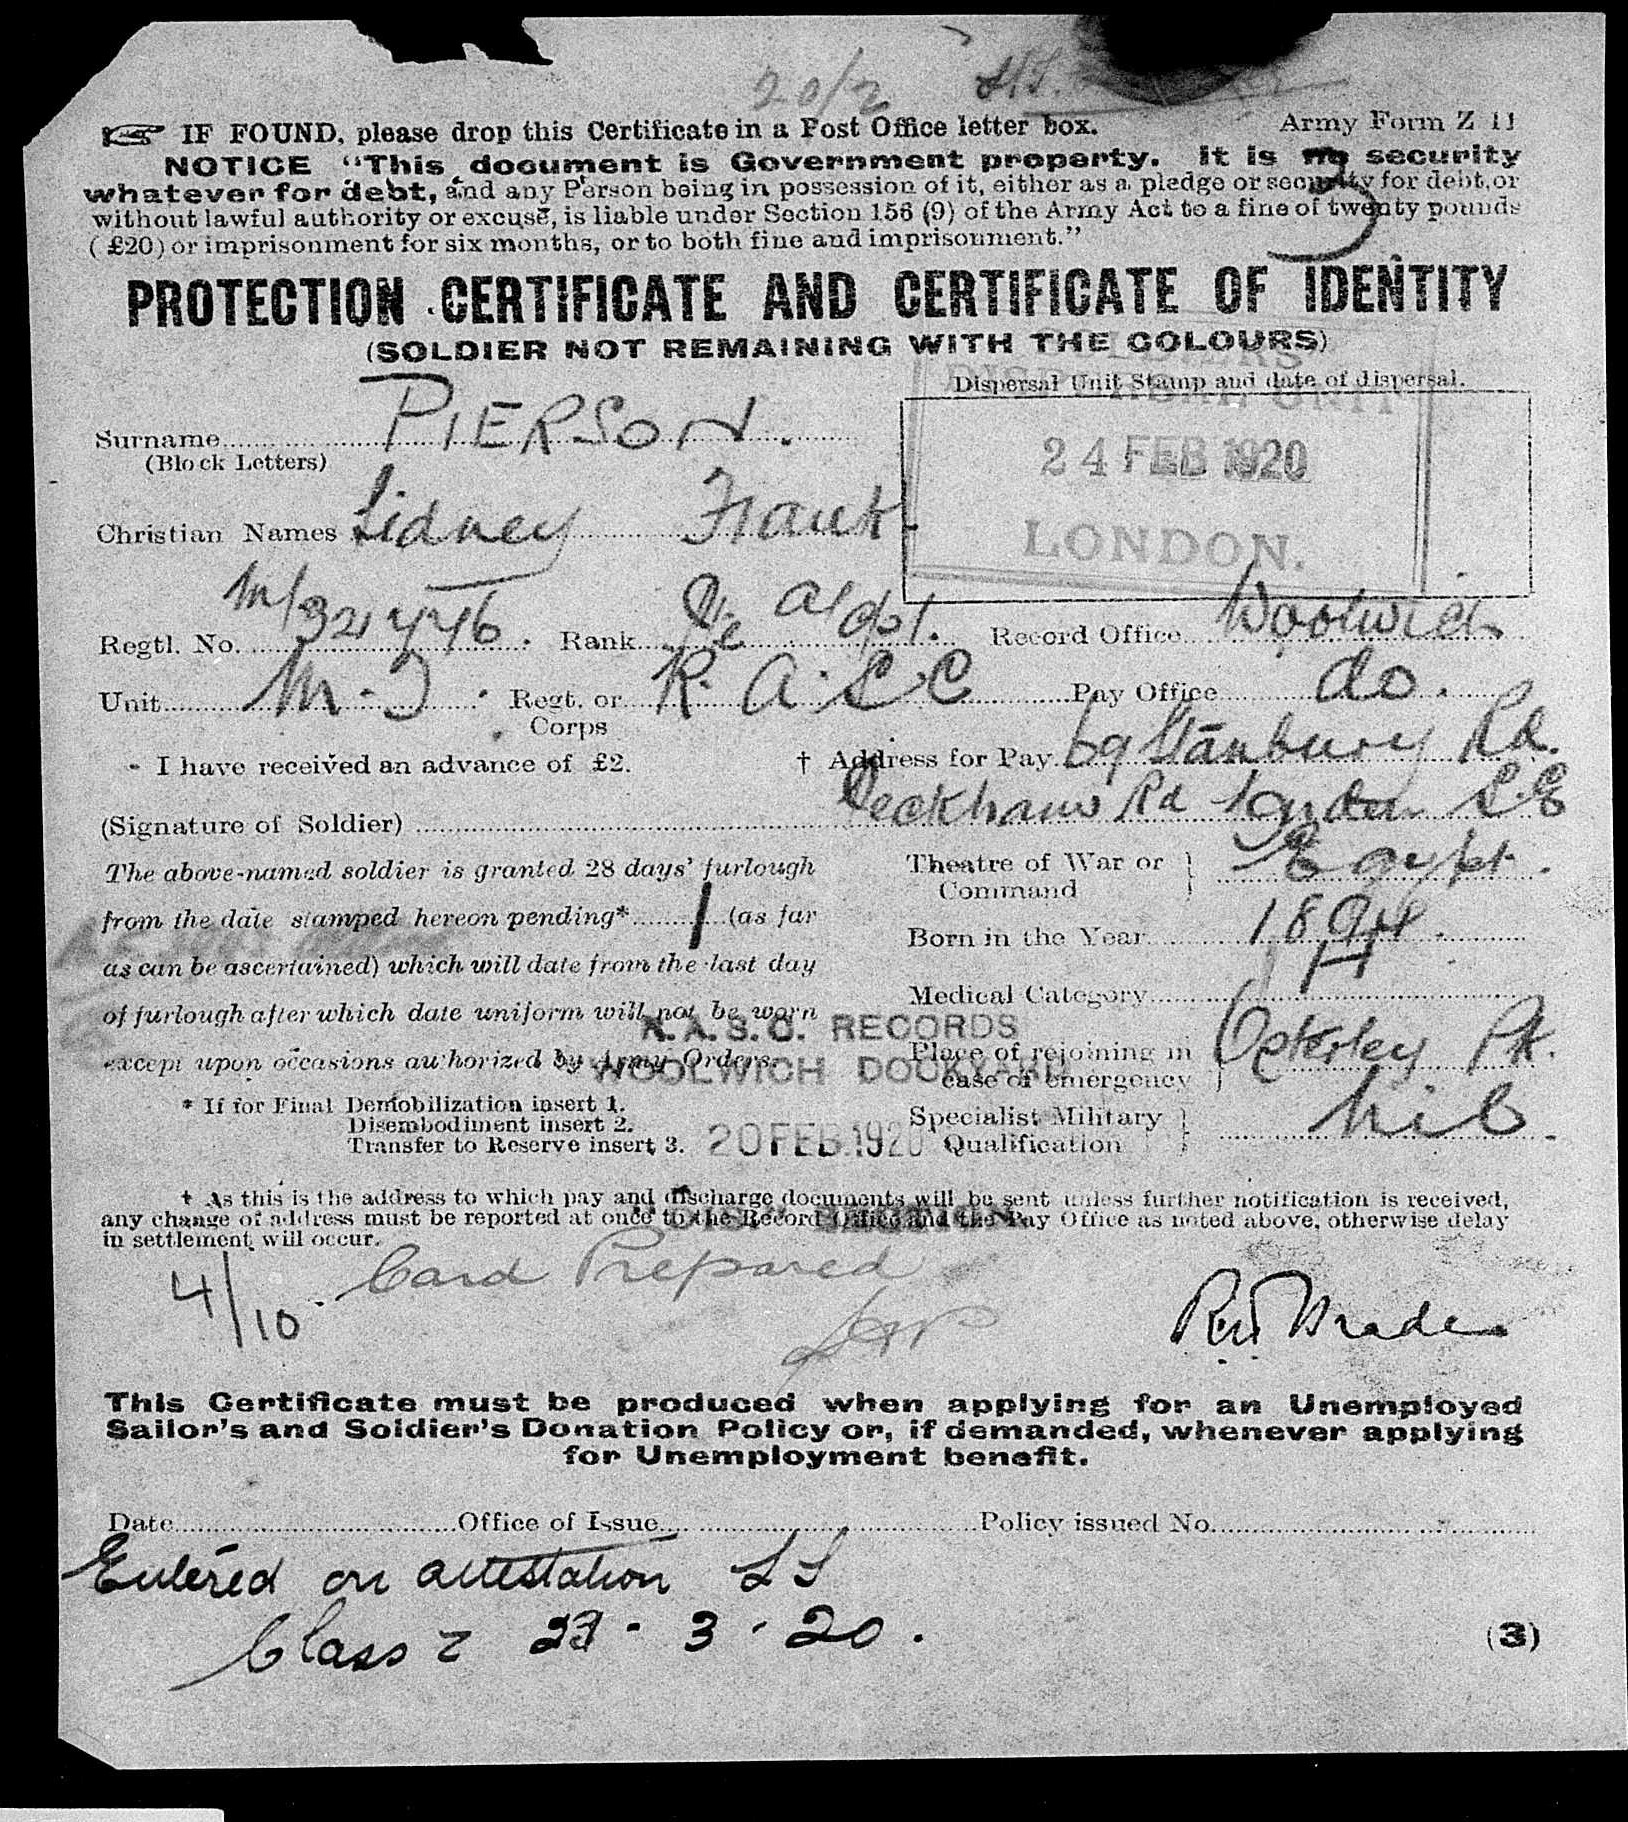 20/2
IF FOUND, please drop this Certificate in a Post Office letter box. Army Form Z 11
NOTICE "This document is Government property. It is no security
whatever for debt, and any Person being in possession of it, either as a pledge or security for debt, or
without lawful authority or excuse, is liable under Section 156 (9) of the Army Act to a fine of twenty pounds
(£20) or imprisonment for six months, or to both fine and imprisonment."
3
PROTECTION CERTIFICATE AND CERTIFICATE OF IDENTITY
(SOLDIER NOT REMAINING WITH THE COLOURS)
Dispersal Unit Stamp and date of dispersal.
DISPERSAL UNIT
24 FEB 1920
LONDON.
Surname PIERSON.
(Block Letters)
Christian Names Sidney Frank
Regtl. No. M/321446. Rank Pte a/Cpl. Record Office Woolwich
Unit M.T. Regt. or Corps R.A.S.C Pay Office do.
- I have received an advance of £2. † Address for Pay 69 Stanbury Rd.
Peckham Rd London S.E
(Signature of Soldier)
The above-named soldier is granted 28 days' furlough
from the date stamped hereon pending* 1 (as far
as can be ascertained) which will date from the last day
of furlough after which date uniform will not be worn
except upon occasions authorized by Army Orders.
* If for Final Demobilization insert 1.
Disembodiment insert 2.
Transfer to Reserve insert 3.
Theatre of War or Command Egypt.
Born in the Year 1894.
Medical Category A
Place of rejoining in case of emergency Osterley Pk.
Specialist Military Qualification Nil
R.A.S.C. RECORDS
WOOLWICH DOCKYARD
20 FEB. 1920
SECTION
† As this is the address to which pay and discharge documents will be sent unless further notification is received,
any change of address must be reported at once to the Record Office and the Pay Office as noted above, otherwise delay
in settlement will occur.
4/10. Card Prepared
This Certificate must be produced when applying for an Unemployed
Sailor's and Soldier's Donation Policy or, if demanded, whenever applying
for Unemployment benefit.
Date Office of Issue Policy issued No.
Entered on attestation
Class Z 23 . 3 . 20 .
(3)